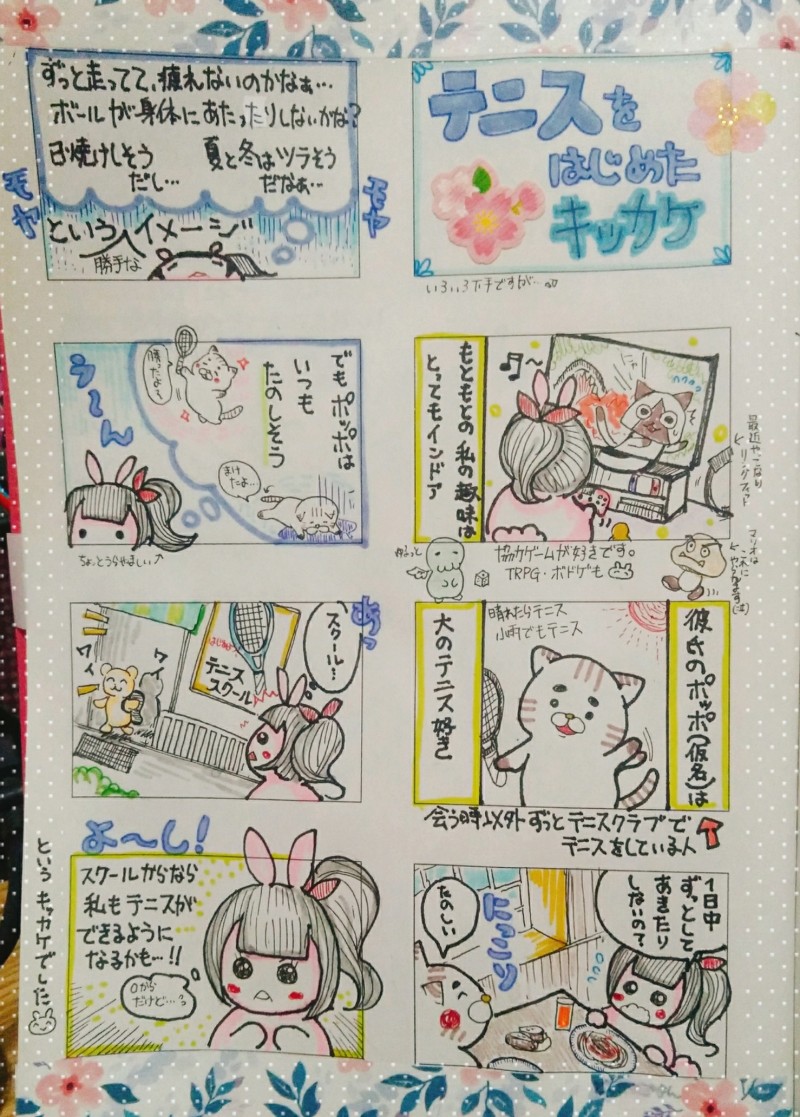 テニスを
はじめた
キッカケ
いろいろ下手ですが…
もともとの私の趣味は
とってもインドア
最近やってるより
リングフィット
協力ゲームが好きです。
TRPG・ボドゲも
マリオは
彼氏のポッポ(仮名)は
晴れたらテニス
小雨でもテニス
大のテニス好き
会う時以外ずっとテニスクラブで
テニスをしている人
1日中
ずっとして
あきたり
しないの?
にっこり
たのしい
ずっと走ってて、疲れないのかなぁ…
ボールが身体にあたったりしないかな?
日焼けしそう
だし…
夏と冬はツラそう
だなぁ…
モヤ
モヤ
という
勝手な
イメージ
でもポッポは
いつも
たのしそう
勝ったよ〜
まけ
たよ…
う〜ん
ちょっとうらやましい↗
あっ
スクール!
はじめての
テニス
スクール
ワイ
ワイ
よ〜し!
スクールからなら
私もテニスが
できるように
なるかも…!!
0から
だけど…
というキッカケでした